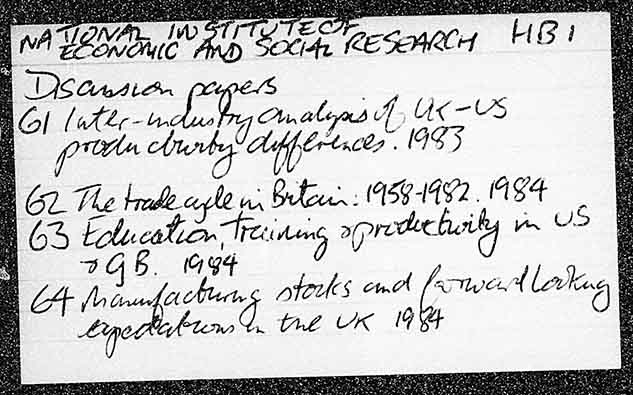 NATIONAL INSTITUTE OF HB1
ECONOMIC AND SOCIAL RESEARCH
Discussion papers
61 Inter-industry analysis of UK-US
productivity differences. 1983
62 The trade cycle in Britain: 1958-1982. 1984
63 Education, Training & productivity in US
& GB. 1984
64 Manufacturing stocks and forward looking
expectations in the UK 1984